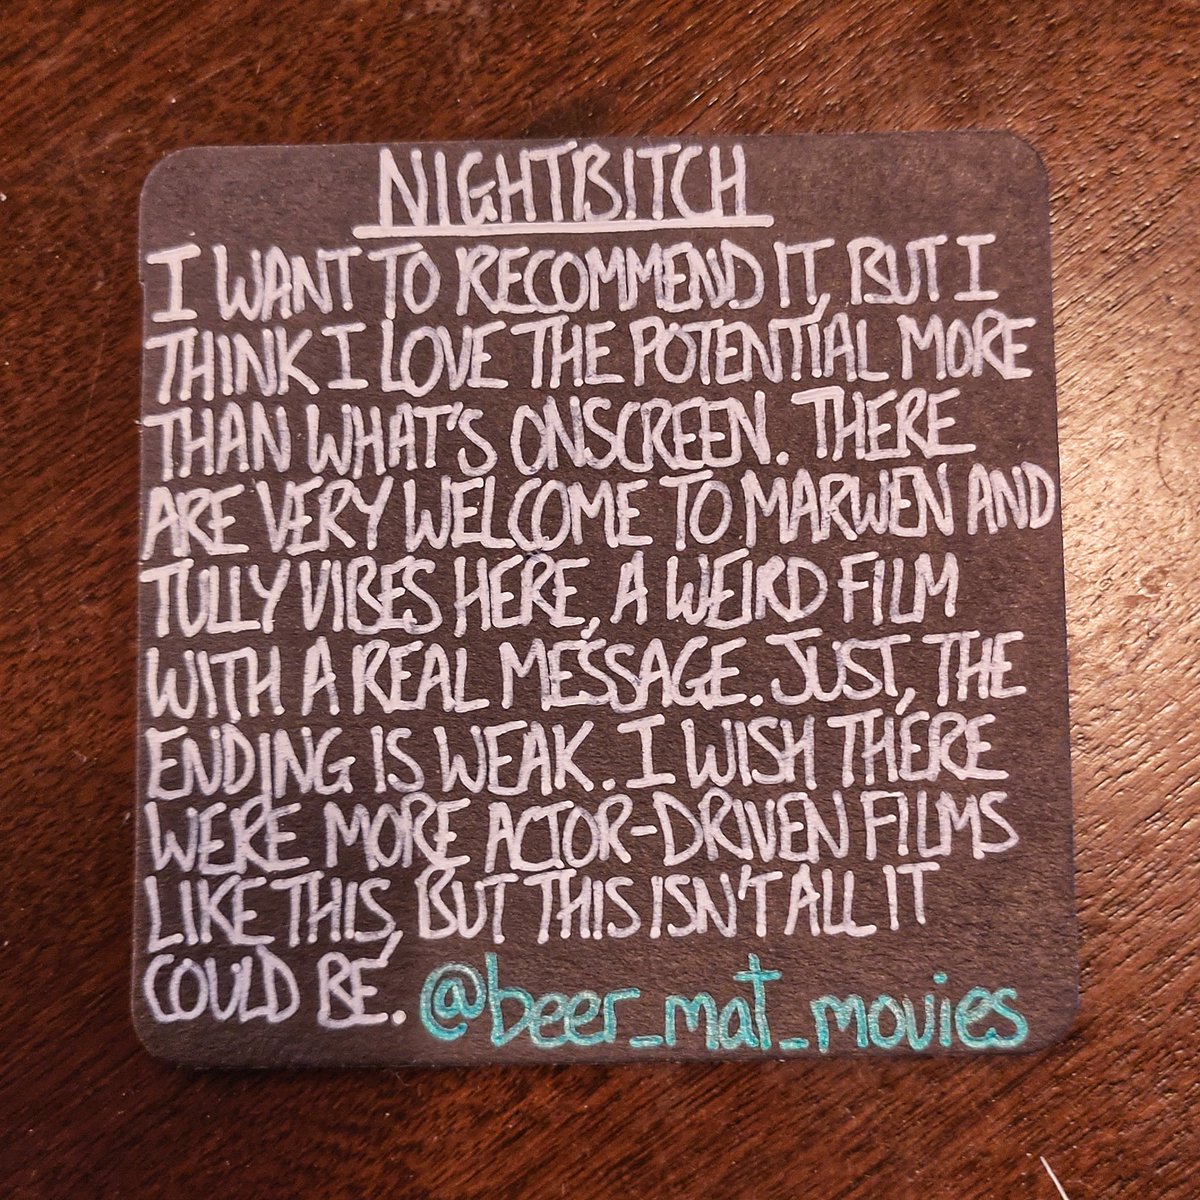 NIGHTBITCH
I WANT TO RECOMMEND IT, BUT I
THINK I LOVE THE POTENTIAL MORE
THAN WHAT'S ONSCREEN. THERE
ARE VERY WELCOME TO MARWEN AND
TULLY VIBES HERE, A WEIRD FILM
WITH A REAL MESSAGE. JUST, THE
ENDING IS WEAK. I WISH THERE
WERE MORE ACTOR-DRIVEN FILMS
LIKE THIS, BUT THIS ISN'T ALL IT
COULD BE. @beer_mat_movies